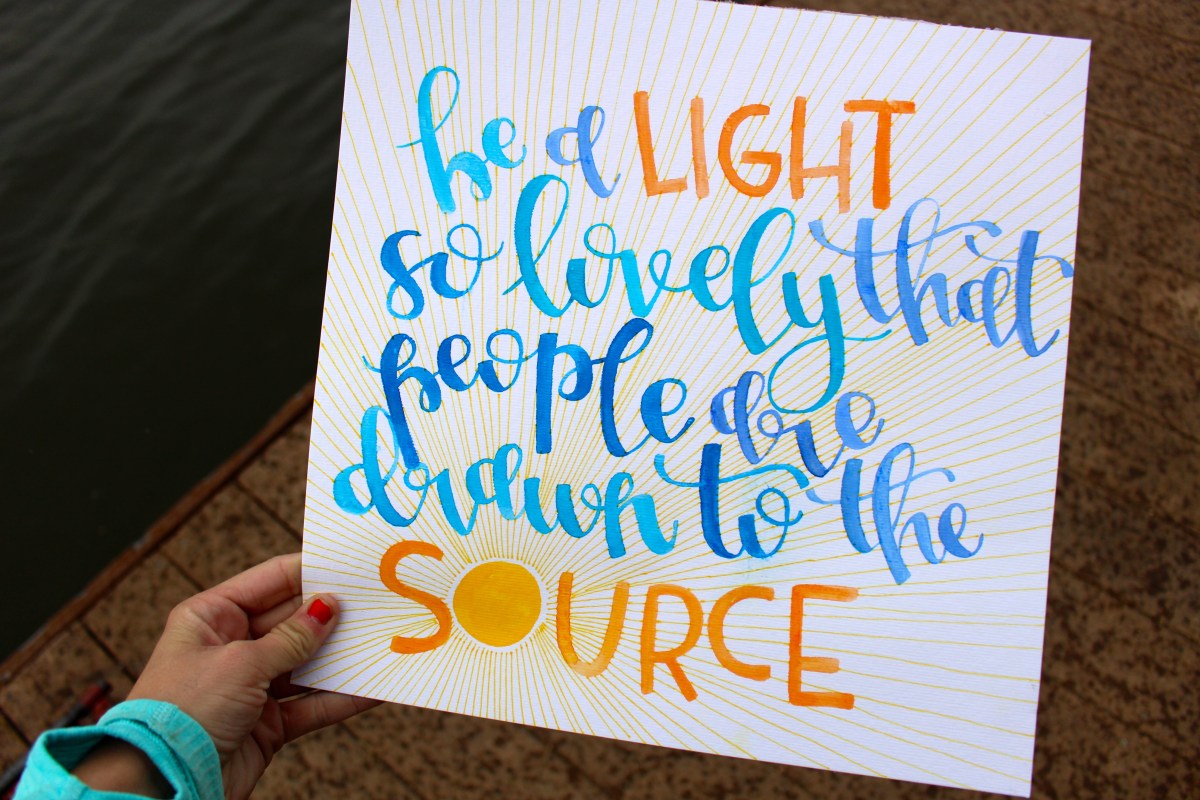 be a LIGHT
so lovely that
people are
drawn to the
SOURCE